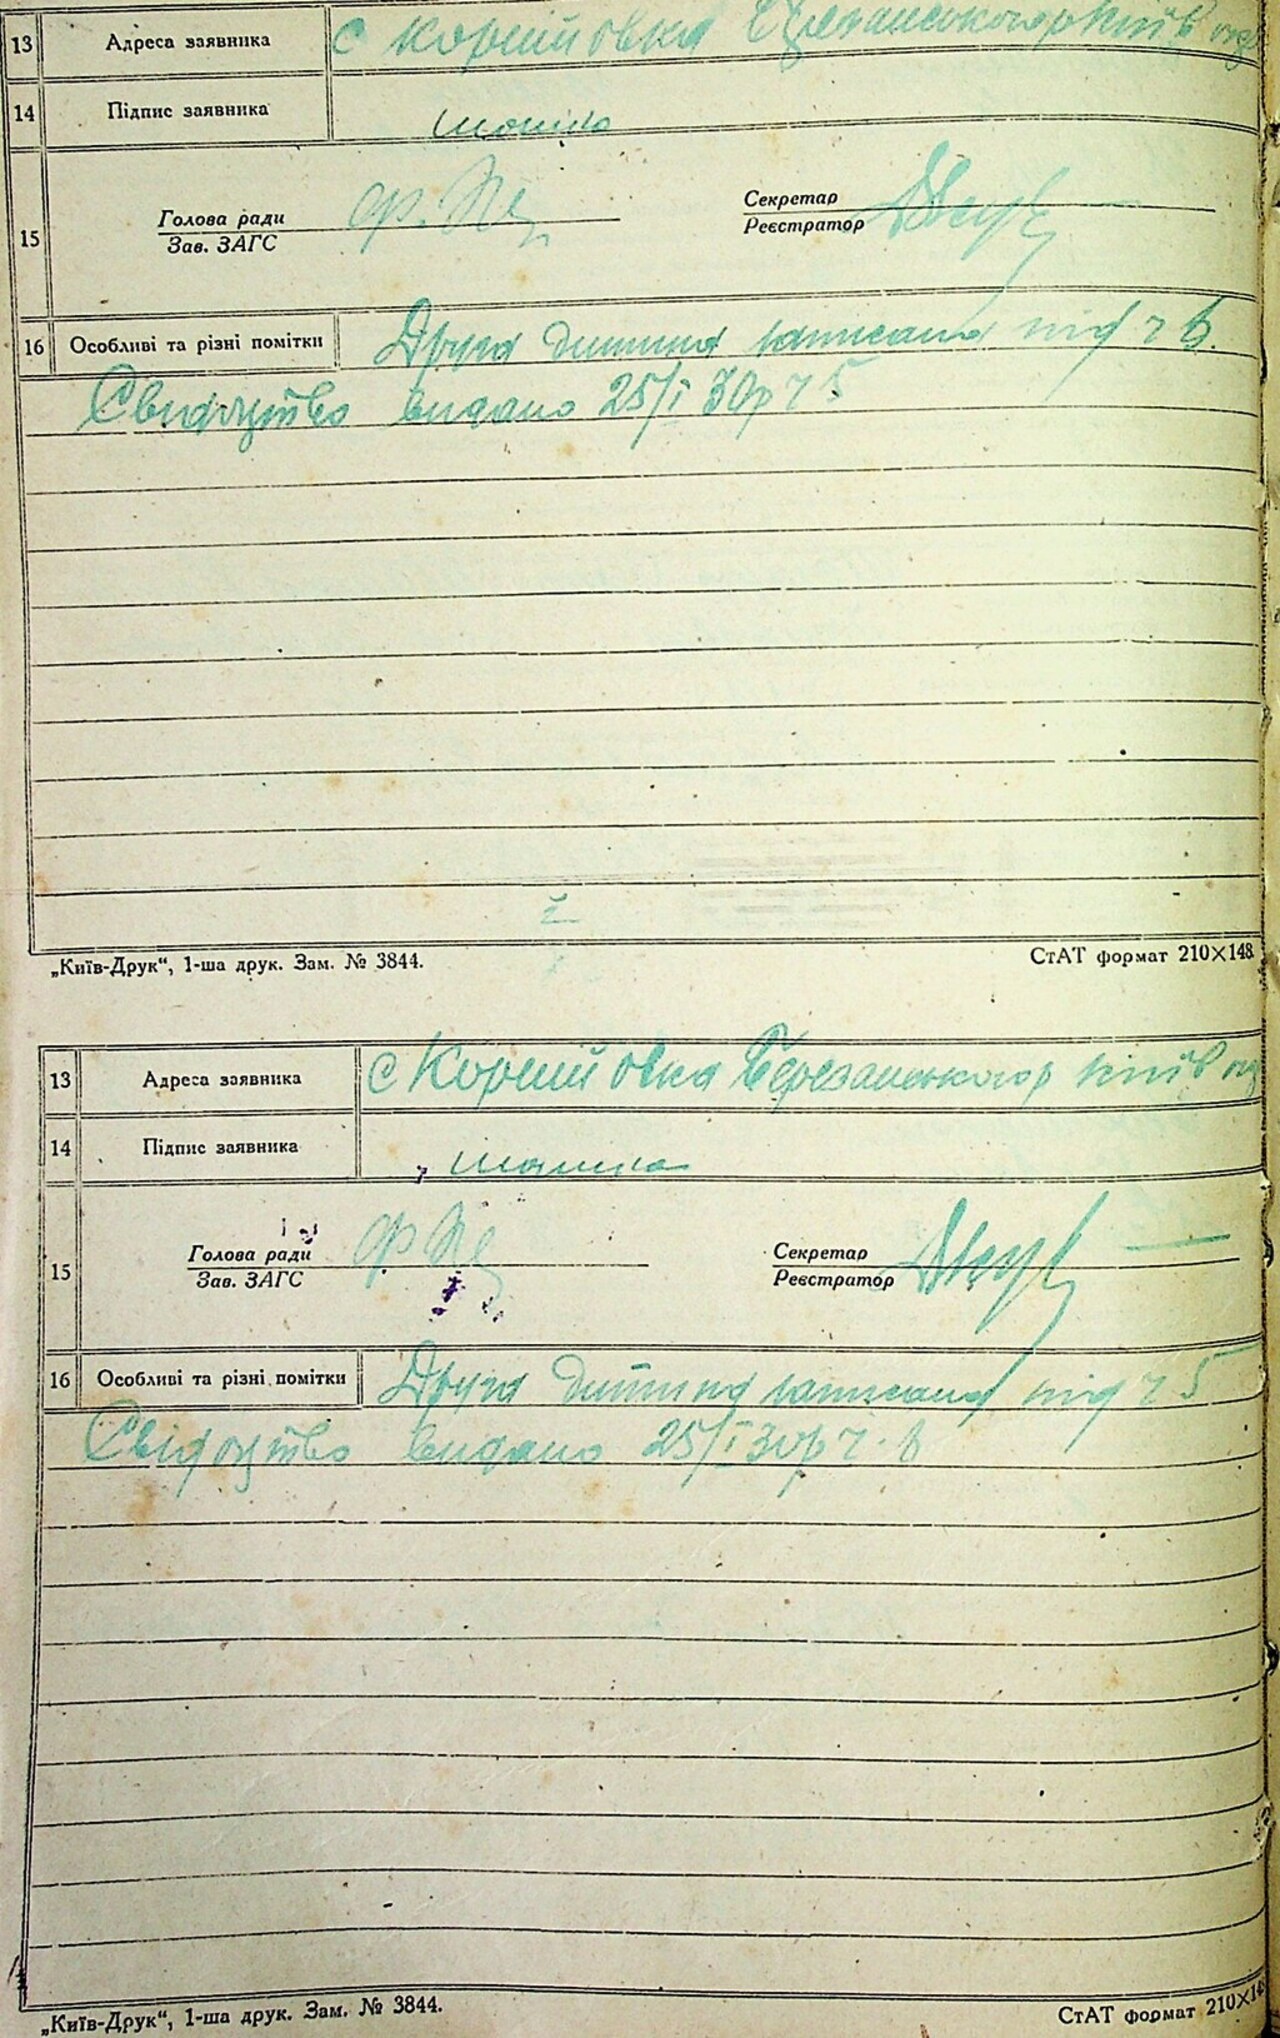 13 Адреса заявника с Корнийовка Березанського р Київ окр
14 Підпис заявника
15 Голова ради Секретар
Зав. ЗАГС Реєстратор
16 Особливі та різні помітки Друга дитина записана під ч 6.
Свидоцтво видано 25/I 30р ч 5
„Київ-Друк“, 1-ша друк. Зам. № 3844. СтАТ формат 210×148.
13 Адреса заявника с Корнийовка Березанського р Київ окр
14 Підпис заявника
15 Голова ради Секретар
Зав. ЗАГС Реєстратор
16 Особливі та різні помітки Друга дитина записана під ч 5
Свідоцтво видано 25/I 30р ч. 6
„Київ-Друк“, 1-ша друк. Зам. № 3844. СтАТ формат 210×14